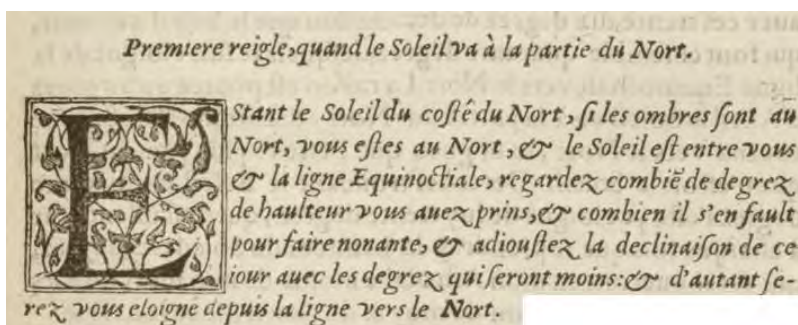 Premiere reigle, quand le Soleil va à la partie du Nort.
EStant le Soleil du costé du Nort, si les ombres sont au
Nort, vous estes au Nort, & le Soleil est entre vous
& la ligne Equinoctiale, regardez combiẽ de degrez
de haulteur vous auez prins, & combien il s'en fault
pour faire nonante, & adioustez la declinaison de ce
iour auec les degrez qui seront moins: & d'autant se-
rez vous eloigné depuis la ligne vers le Nort.